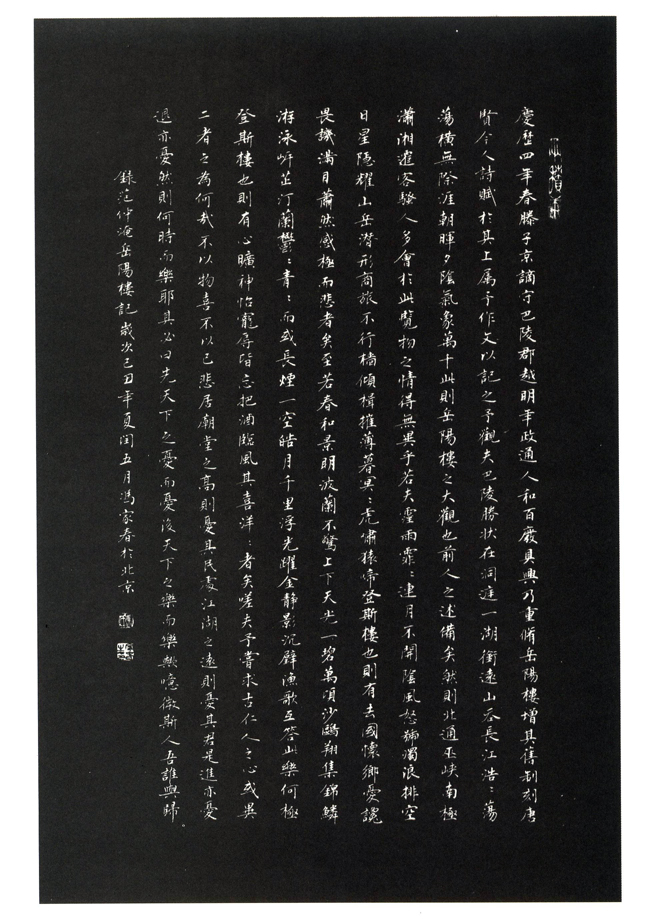 慶歷四年春滕子京謫守巴陵郡越明年政通人和百廢具興乃重脩岳陽樓增其舊制刻唐
賢今人詩賦於其上属予作文以記之予觀夫巴陵勝狀在洞庭一湖銜遠山吞長江浩〻蕩
蕩橫無際涯朝暉夕陰氣象萬千此則岳陽樓之大觀也前人之述備矣然則北通巫峽南極
瀟湘遷客騷人多會於此覽物之情得無異乎若夫霪雨霏〻連月不開陰風怒號濁浪排空
日星隱耀山岳潛形商旅不行檣傾楫摧薄暮冥〻虎嘯猿啼登斯樓也則有去國懷鄉憂讒
畏譏滿目蕭然感極而悲者矣至若春和景明波蘭不驚上下天光一碧萬頃沙鷗翔集錦鱗
游泳岸芷汀蘭鬱〻青〻而或長煙一空皓月千里浮光躍金靜影沉璧漁歌互答此樂何極
登斯樓也則有心曠神怡寵辱皆忘把酒臨風其喜洋〻者矣嗟夫予嘗求古仁人之心或異
二者之為何哉不以物喜不以己悲居廟堂之高則憂其民處江湖之遠則憂其君是進亦憂
退亦憂然則何時而樂耶其必曰先天下之憂而憂後天下之樂而樂歟噫微斯人吾誰與歸。
錄范仲淹岳陽樓記歲次己丑年夏閏五月馮家春於北京